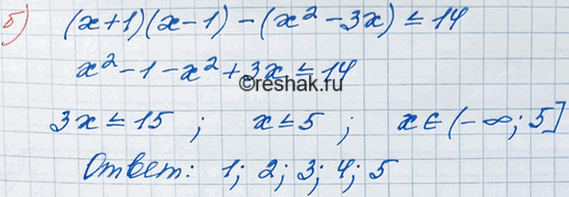 б) (x+1)(x-1) - (x² - 3x) ≤ 14
x² - 1 - x² + 3x ≤ 14
©reshak.ru
3x ≤ 15 ; x ≤ 5 ; x ∈ (-∞; 5]
Ответ: 1; 2; 3; 4; 5